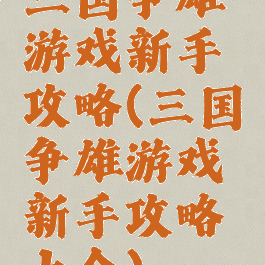 三国争雄
游戏新手
攻略(三国
争雄游戏
新手攻略
大全)